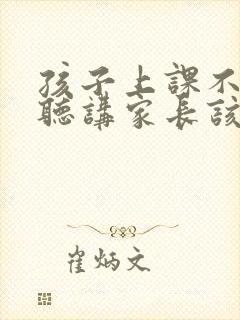 孩子上課不
聽講家長該
崔炳文